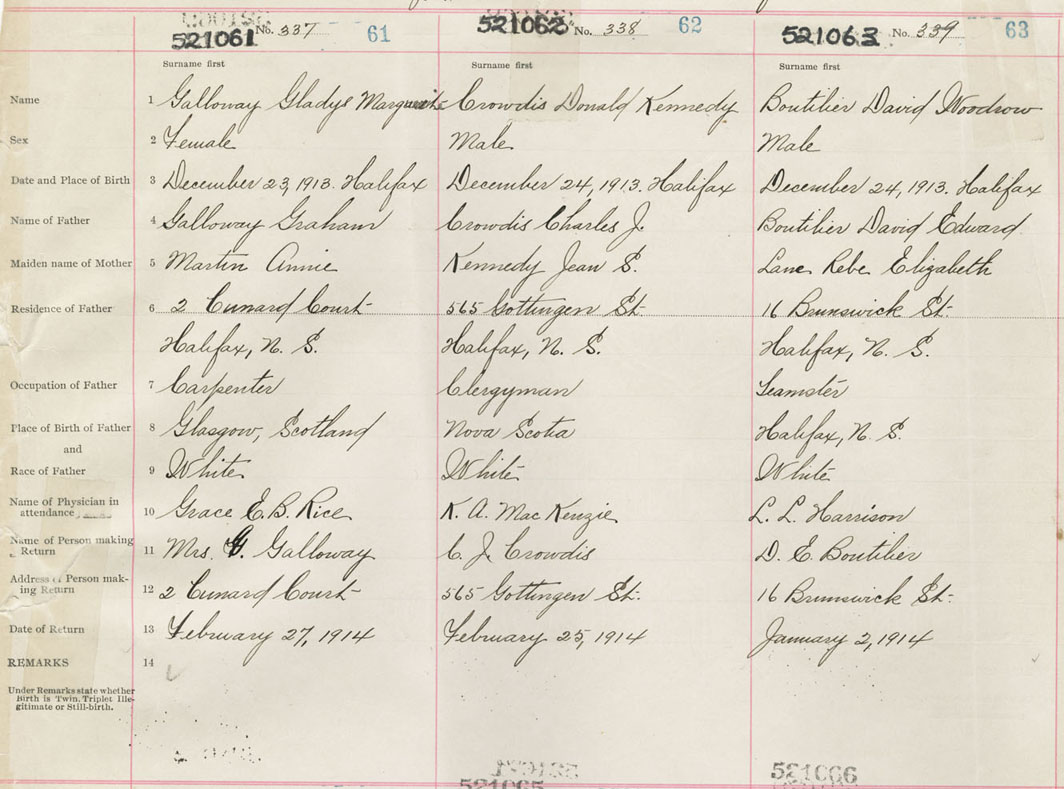 521061 No. 337 61
521062 No. 338 62
521063 No. 339 63
Surname first Surname first Surname first
Name 1 Galloway Gladys Crowdis Donald Kennedy Boutilier David Woodrow
Sex 2 Female Male Male
Date and Place of Birth 3 December 23, 1913. Halifax December 24, 1913. Halifax December 24, 1913. Halifax
Name of Father 4 Galloway Graham Crowdis Charles J. Boutilier David Edward
Maiden name of Mother 5 Martin Annie Kennedy Jean S. Lane Rebe Elizabeth
Residence of Father 6 2 Cunard Court 565 Gottingen St. 16 Brunswick St.
Halifax, N. S. Halifax, N. S. Halifax, N. S.
Occupation of Father 7 Carpenter Clergyman Teamster
Place of Birth of Father 8 Glasgow, Scotland Nova Scotia Halifax, N. S.
and
Race of Father 9 White White White
Name of Physician in
attendance 10 Grace E. B. Rice K. A. MacKenzie L. L. Harrison
Name of Person making
Return 11 Mrs. G. Galloway C. J. Crowdis D. E. Boutilier
Address of Person mak-
ing Return 12 2 Cunard Court 565 Gottingen St. 16 Brunswick St.
Date of Return 13 February 27, 1914 February 25, 1914 January 2, 1914
REMARKS 14
Under Remarks state whether
Birth is Twin, Triplet Ille-
gitimate or Still-birth.
521065 521066